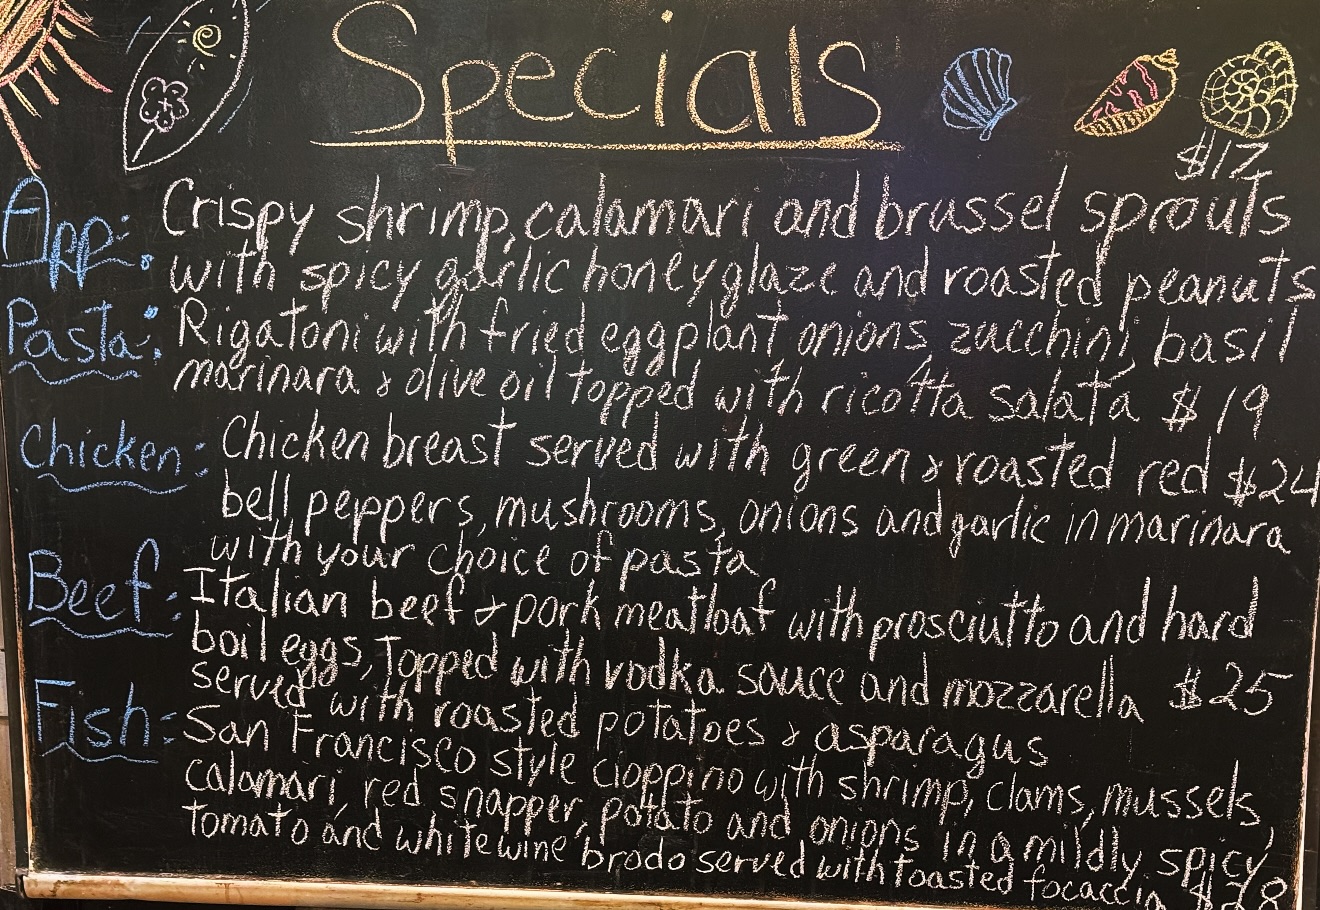 Specials
$12
App: Crispy shrimp, calamari and brussel sprouts
with spicy garlic honey glaze and roasted peanuts
Pasta: Rigatoni with fried eggplant, onions, zucchini, basil
marinara & olive oil topped with ricotta salata $19
Chicken: Chicken breast served with green & roasted red $24
bell peppers, mushrooms, onions and garlic in marinara
with your choice of pasta
Beef: Italian beef & pork meatloaf with prosciutto and hard
boil eggs, Topped with vodka sauce and mozzarella $25
served with roasted potatoes & asparagus
Fish: San Francisco style cioppino with shrimp, clams, mussels,
calamari, red snapper, potato and onions in a mildly spicy,
tomato and white wine brodo served with toasted focaccia $28